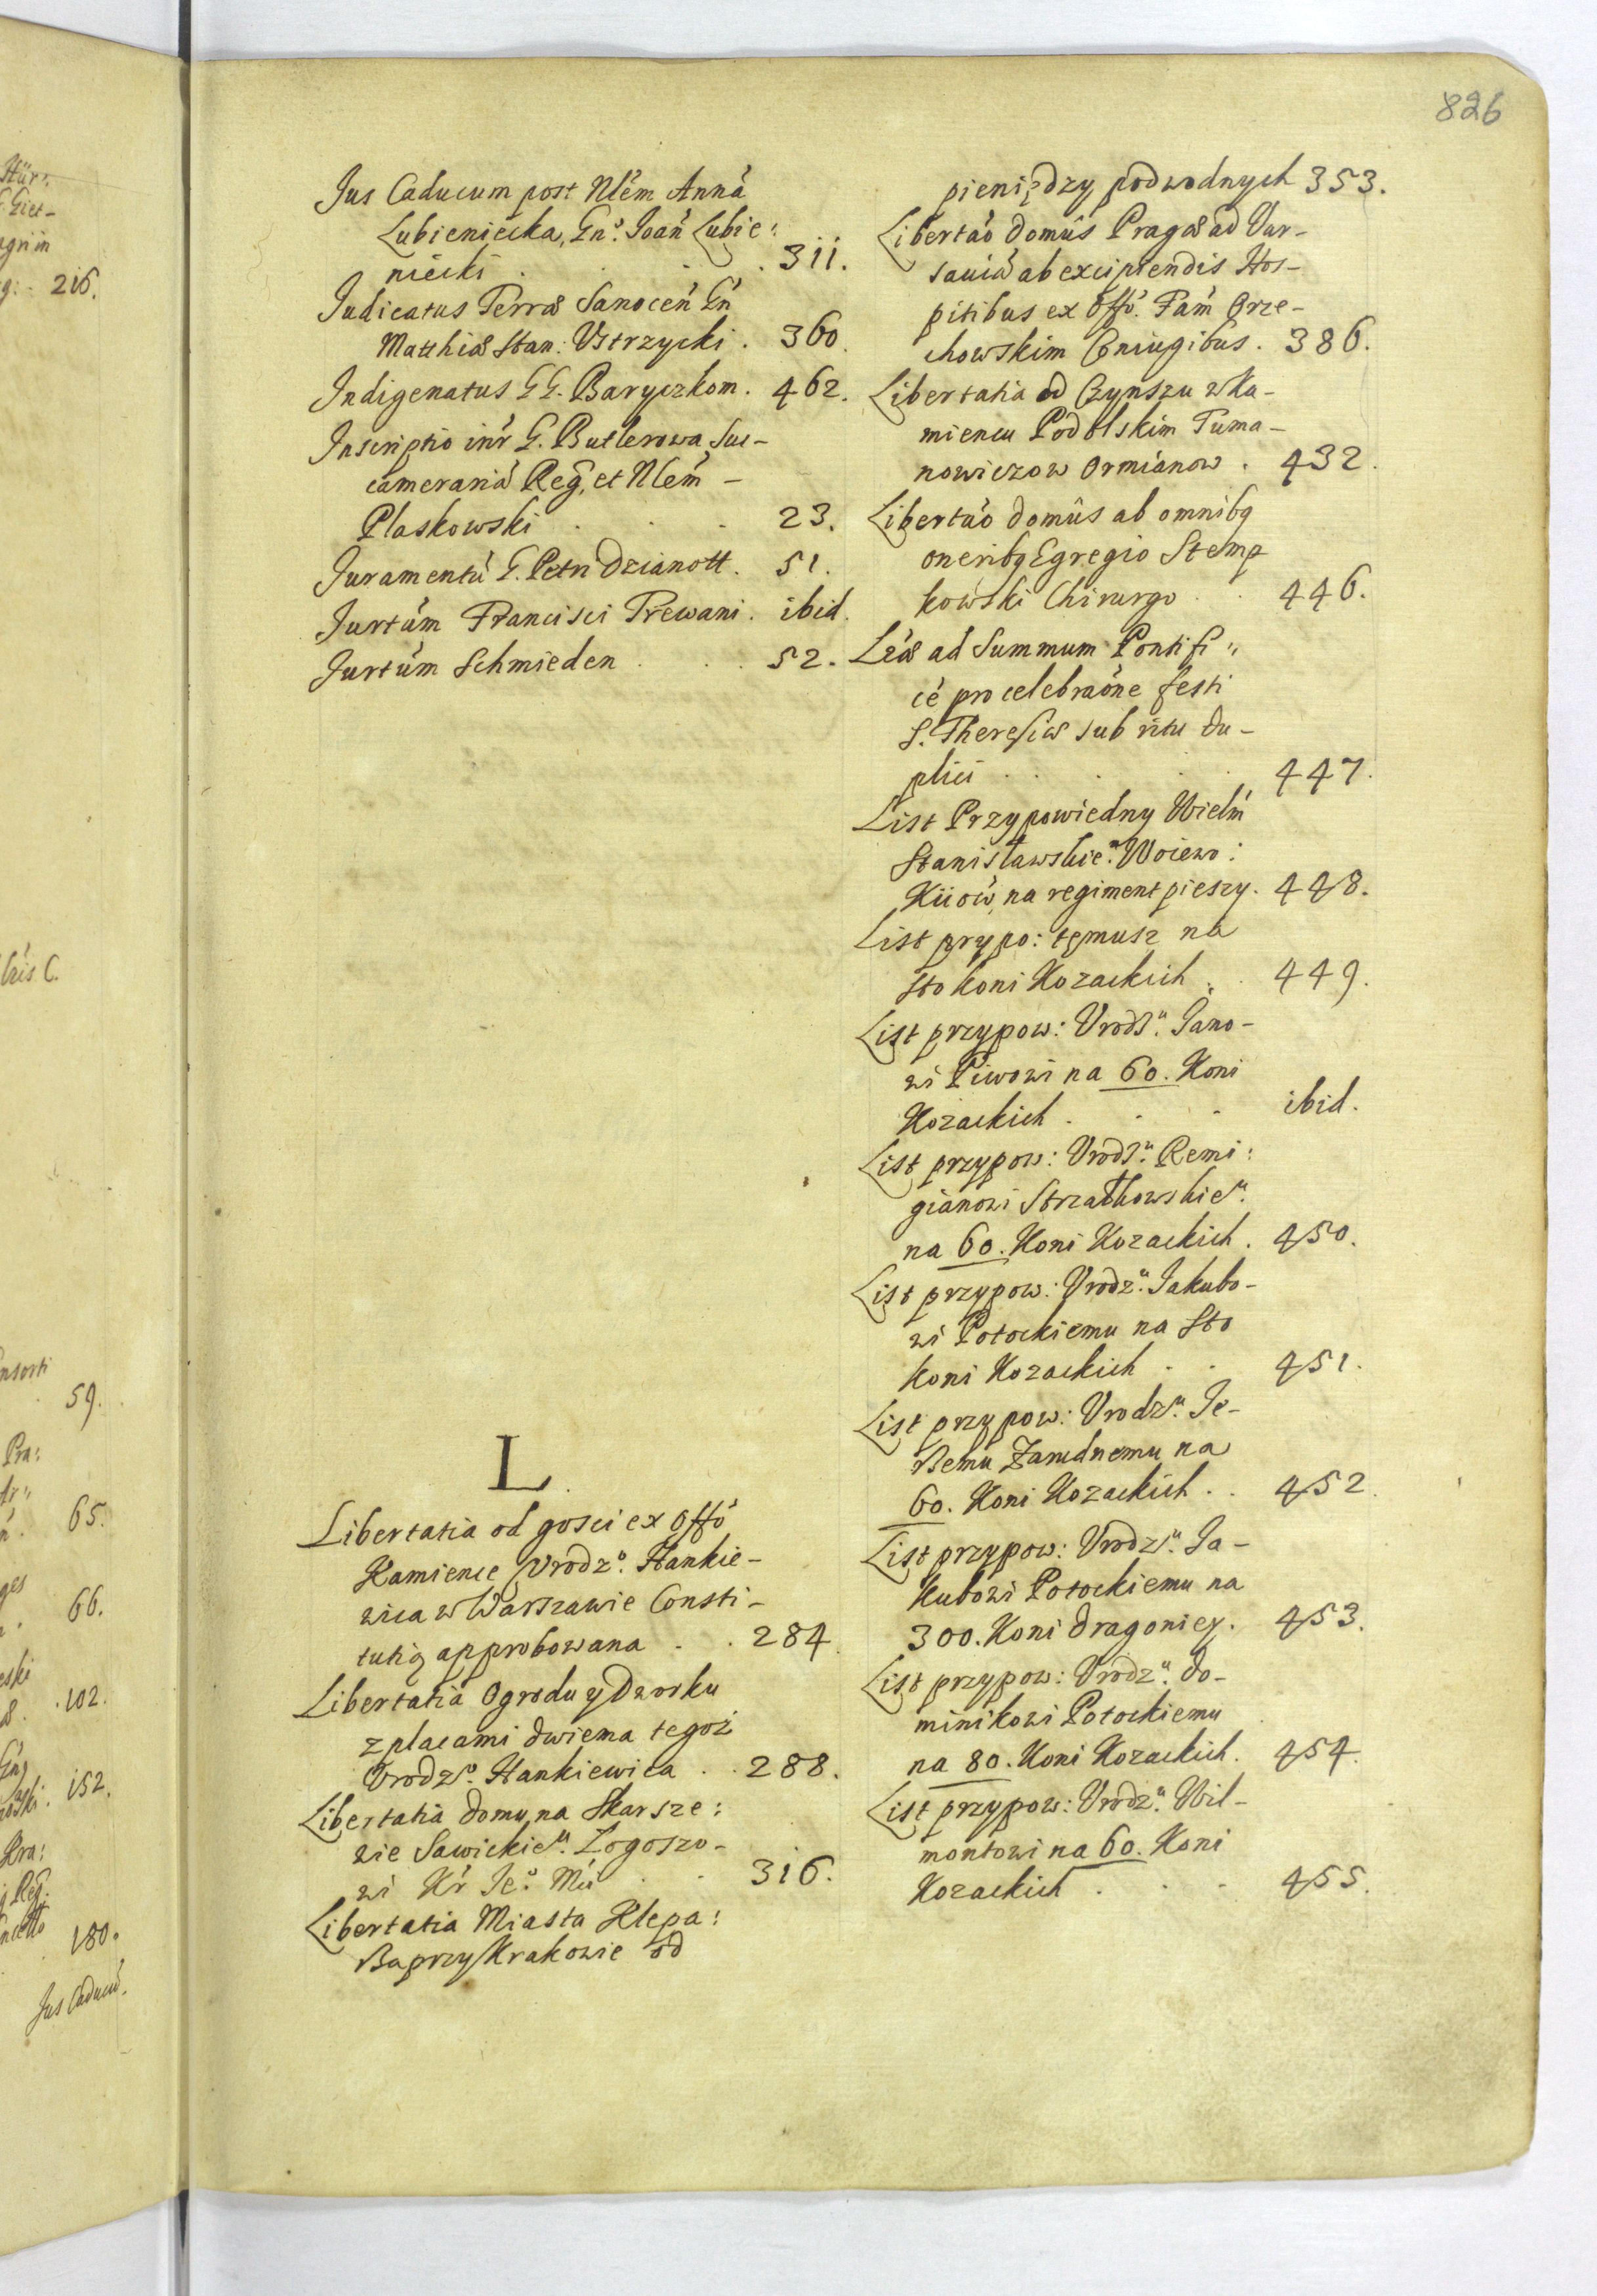 826
Jus Caducum post Nlem Anna
Lubieniecka, Gnо. Joan Lubie:
niecki . . . 311.
Judicatus Terræ Sanocen Gn
Matthiæ Stan: Ustrzycki . 360.
Indigenatus GG. Baryczkom . 462.
Inscriptio inr G. Butlerowa Suc-
cameraria Reg, et Nlem -
Plaskowski . . . 23.
Juramentu G. Petri Dzianott . 51.
Jurtum Francisci Prewani . ibid.
Jurtum Schmieden . . . 52.
L.
Libertatia od gosci ex Offo
Kamience Urodzo. Hankie-
wica w Warszawie Consti-
tutią approbowana . . 284.
Libertatia Ogrodu y Dworku
z placami dwiema tegoż
Urodzo. Hankiewica . . 288.
Libertatia domu na Skarsze:
wie Sawickieu. Logoszo-
wi Kr Jeo. Mci . . 316.
Libertatia Miasta Klepa:
Ba przy Krakowie od
pieniędzy podwodnych 353.
Libertao domûs Pragæ ad Var-
saviâ ab excipiendis Hos-
pitibus ex Offo. Fam Orze-
chowskim Coniugibus . 386.
Libertatia od Czynszu w Ka-
miencu Podolskim Tuma-
nowiczow Ormianow . 432.
Libertao domûs ab omnibq
oneribq Egregio Stemp
kowski Chirurgo . . 446.
Lræ ad Summum Pontifi:,
cé pro celebraone festi
S. Theresiæ sub ritu du-
plici . . . . 447.
List Przypowiedny Wielm
Stanisławskieu. Woiewo:
Kiiow, na regiment pieszy . 448.
List przypo: temusz na
sto koni Kozackich . . 449.
List przypow: Urodzu. Jano-
wi Piwowi na 60. Koni
Kozackich . . . ibid.
List przypow: Urodzu. Remi:
gianowi Strzałkowskieu.
na 60. Koni Kozackich . 450.
List przypow: Urodzu. Jakubo-
wi Potockiemu na Sto
koni Kozackich . . 451.
List przypow: Urodzu. Je-
Remu Zarudnemu na
60. Koni Kozackich . . 452.
List przypow: Urodzu. Ja-
kubowi Potockiemu na
300. Koni dragoniey . 453.
List przypow: Urodzu. Do-
minikowi Potockiemu
na 80. Koni Kozackich . 454.
List przypow: Urodzu. Wil-
montowi na 60. Koni
Kozackich . . . 455.
216.
59.
65.
66.
102.
152.
180.
Jus Caducu.